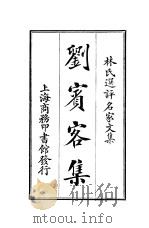 林氏選評名家文集
劉賓客集
上海商務印書館發行
www.toutu100.com